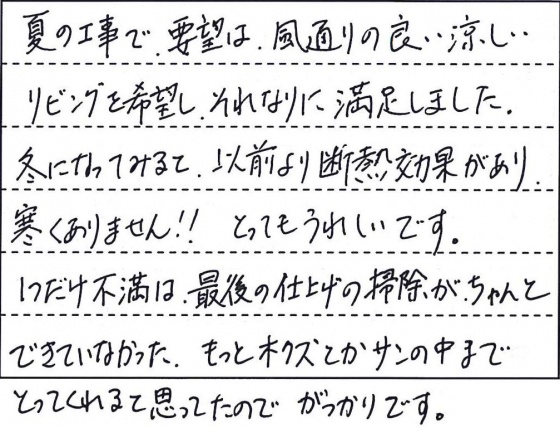 夏の工事で、要望は、風通りの良い涼しい
リビングを希望し、それなりに満足しました。
冬になってみると、以前より断熱効果があり、
寒くありません!! とってもうれしいです。
1つだけ不満は、最後の仕上げの掃除が、ちゃんと
できていなかった、もっと木クズとかサンの中まで
とってくれると思ってたので がっかりです。